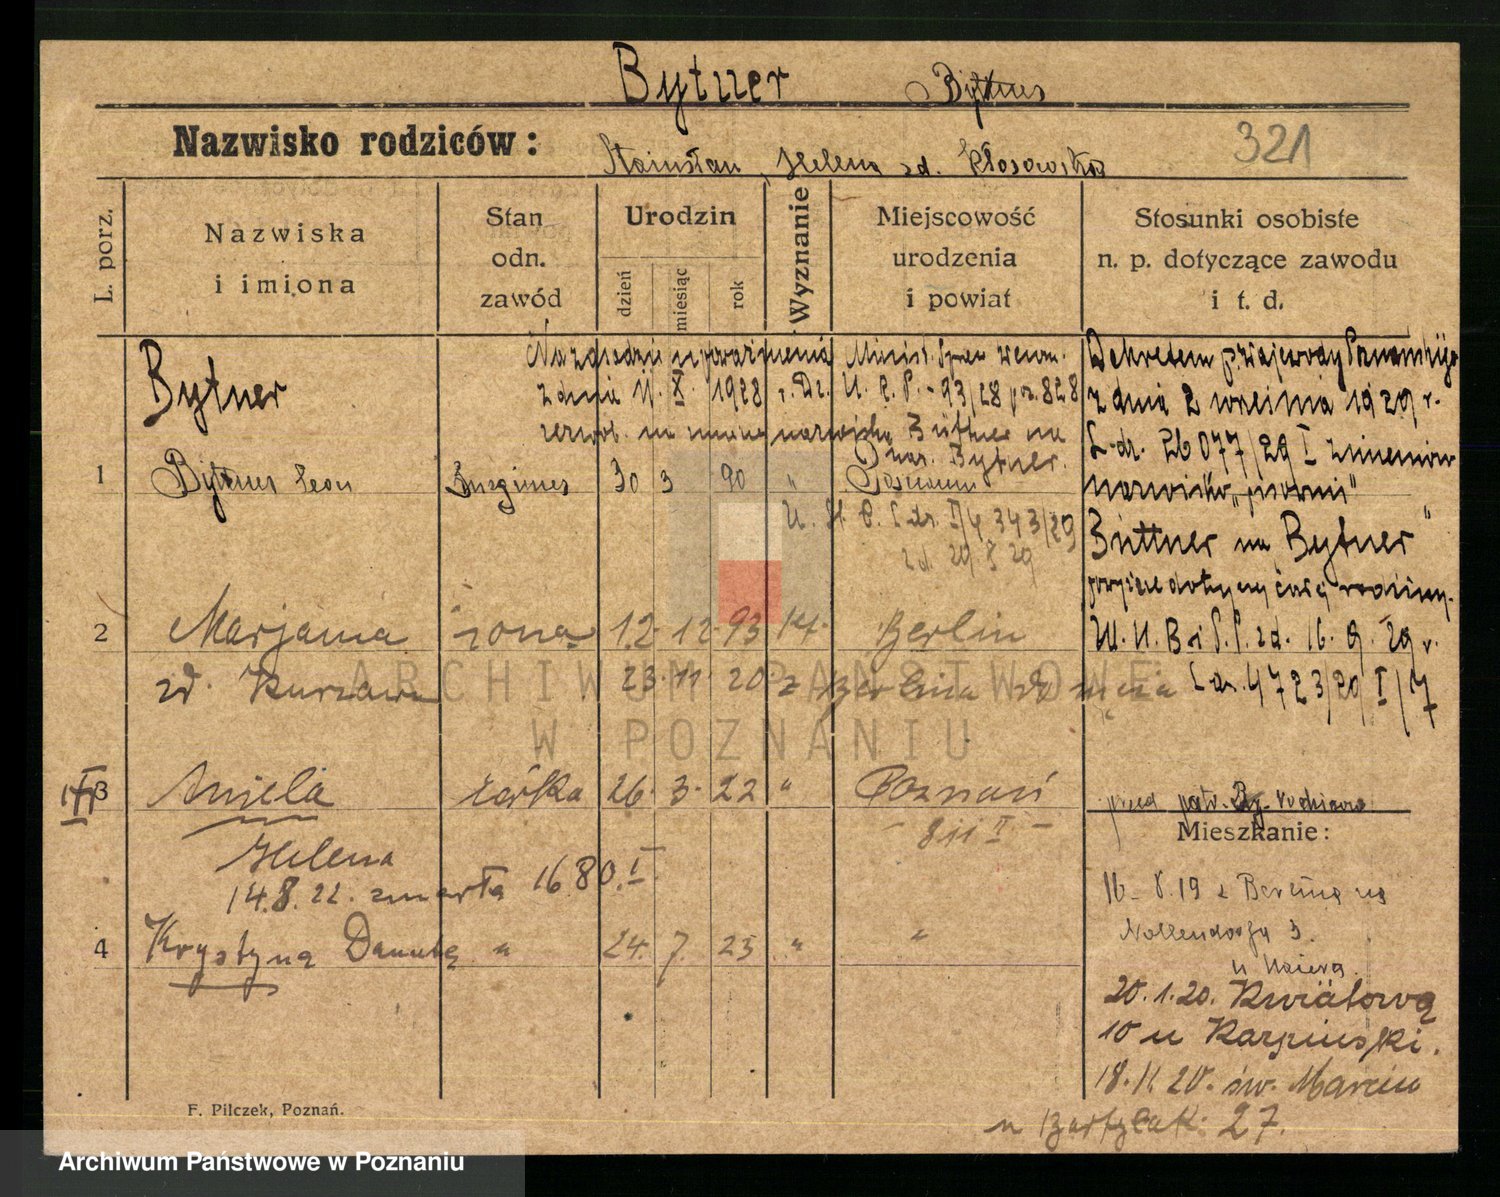 Bytner
Nazwisko rodziców: Stanisław, Helena zd. Kłosowska
321
L. porz.
Nazwiska
i imiona
Stan
odn.
zawód
Urodzin
dzień
miesiąc
rok
Wyznanie
Miejscowość
urodzenia
i powiat
Stosunki osobiste
n. p. dotyczące zawodu
i t. d.
Bytner
Na zasadzie upoważnienia Minist. Spraw wewn.
z dnia 11. X. 1928 r. Dz. U. R. P. - 93/28 poz. 828
zezwol. na zmianę nazwiska Büttner na
naz. Bytner.
1 Leon 30 3 90 "
L. dz. I/4 343/29
z d. 29 29
Dekretem p. wojewody Poznańskiego
z dnia 2 września 1929 r.
L. dz. 26077/29 I zmieniono
nazwisko „pisowni"
Büttner na Bytner"
powyższe dotyczy całej rodziny.
zd. 16. 9. 29 r.
L. dz. 4723/29 I/7
2 Marjanna żona 12. 12. 93 Berlin
zd. Kurzawa 23. 11. 20 z Berlina do
3 Aniela córka 26. 3. 22 " Poznań
- 811 II -
Helena
14.8.22. zmarła 1680. I
4 Krystyna Danuta " 24. 7. 25 " "
Mieszkanie:
16. 8. 19 z Berlina na
Nollendorfa 3.
20. 1. 20. Kwiatową
10 u Karpiński.
18. 11. 20. św. Marcin
u Bartylak. 27.
F. Pilczek, Poznań.
ARCHIWUM PAŃSTWOWE
W POZNANIU
Archiwum Państwowe w Poznaniu